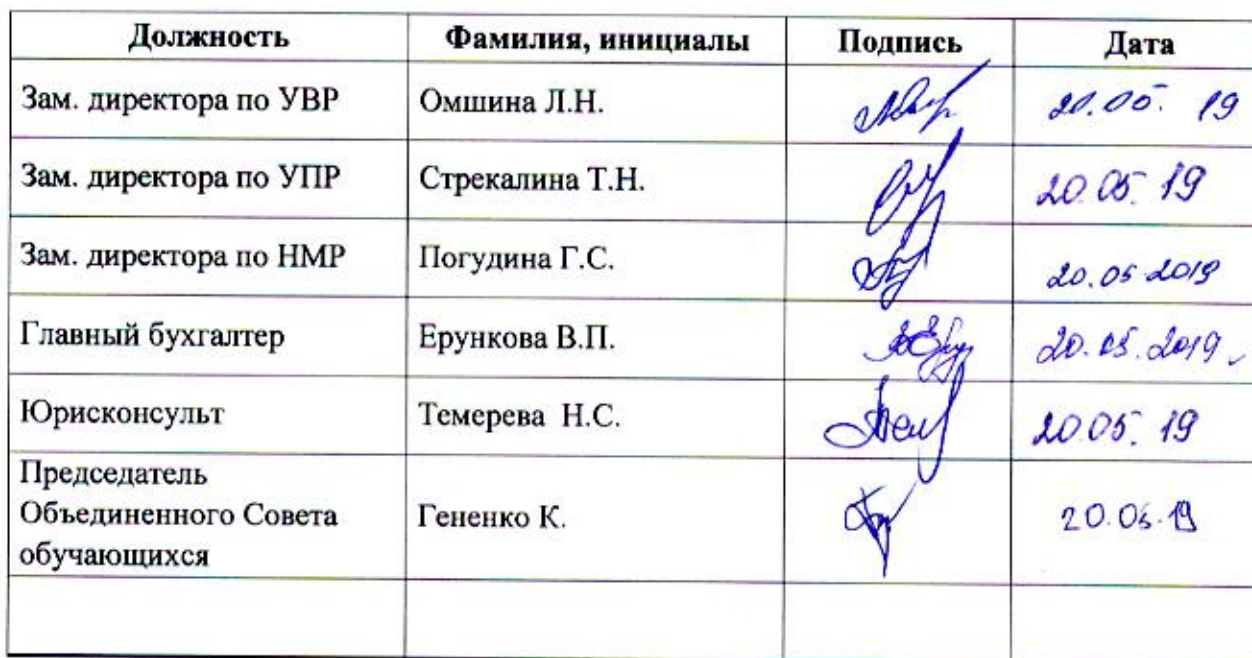 Должность Фамилия, инициалы Подпись Дата
Зам. директора по УВР Омшина Л.Н. 20.05. 19
Зам. директора по УПР Стрекалина Т.Н. 20.05. 19
Зам. директора по НМР Погудина Г.С. 20.05.2019
Главный бухгалтер Ерункова В.П. 20.05.2019
Юрисконсульт Темерева Н.С. 20.05. 19
Председатель
Объединенного Совета Гененко К. 20.05.19
обучающихся